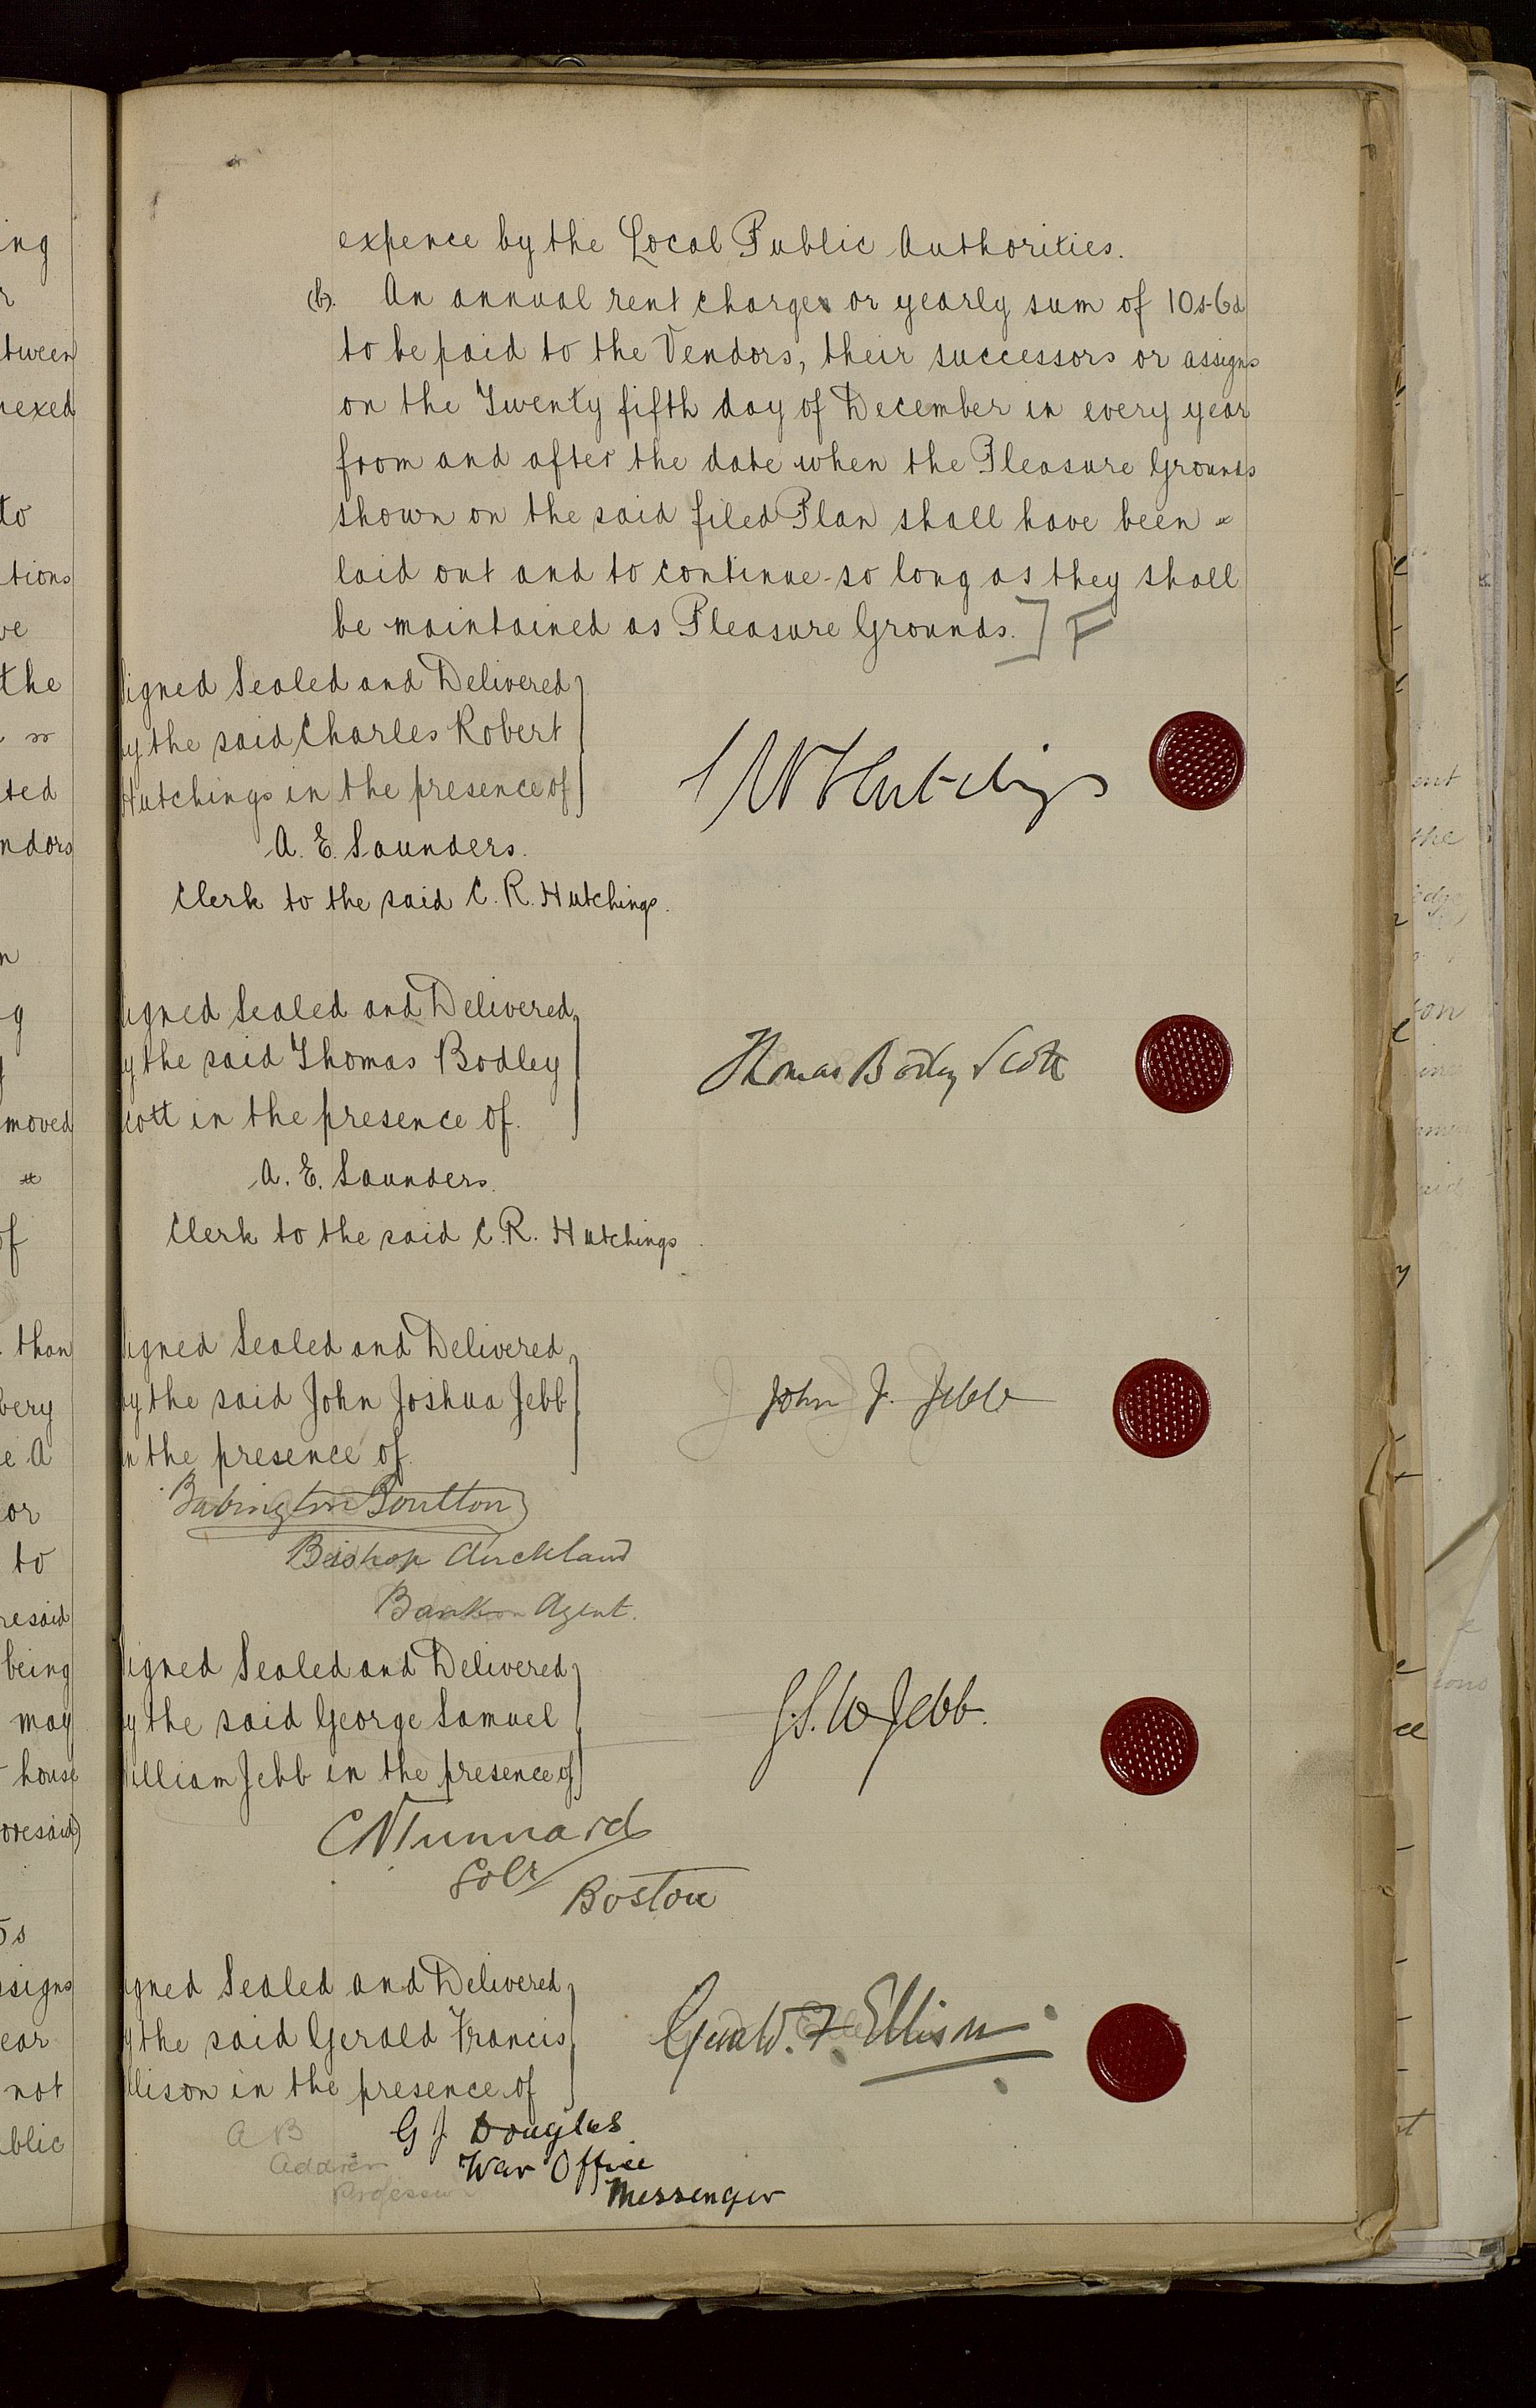 expence by the Local Public Authorities.
(b). An annual rent charge or yearly sum of 10s-6d
to be paid to the Vendors, their successors or assigns
on the Twenty fifth day of December in every year
from and after the date when the Pleasure Grounds
shown on the said filed Plan shall have been
laid out and to continue so long as they shall
be maintained as Pleasure Grounds.] F
Signed Sealed and Delivered
by the said Charles Robert
Hutchings in the presence of
Hutchings
A. E. Saunders.
Clerk to the said C. R. Hutchings.
igned Sealed and Delivered
y the said Thomas Bodley
cott in the presence of.
Thomas Bodley Scott
A. E. Saunders.
Clerk to the said C. R. Hutchings
igned Sealed and Delivered
by the said John Joshua Jebb
in the presence of
John J. Jebb
Babington Boulton
Bishop Auckland
Bank Agent.
igned Sealed and Delivered
y the said George Samuel
illiam Jebb in the presence of
G.S.W Jebb.
C N Tunnard
Solr
Boston
igned Sealed and Delivered
y the said Gerald Francis
llison in the presence of
Gerald. F. Ellison
A B
Address
Profession
G J Douglas
War Office
Messenger
ing
r
tween
nexed
to
tions
ve
the
ted
ndors
n
g
moved
of
than
very
e A
or
to
resaid
being
may
house
oresaid)
5s
ssigns
ear
not
ublic